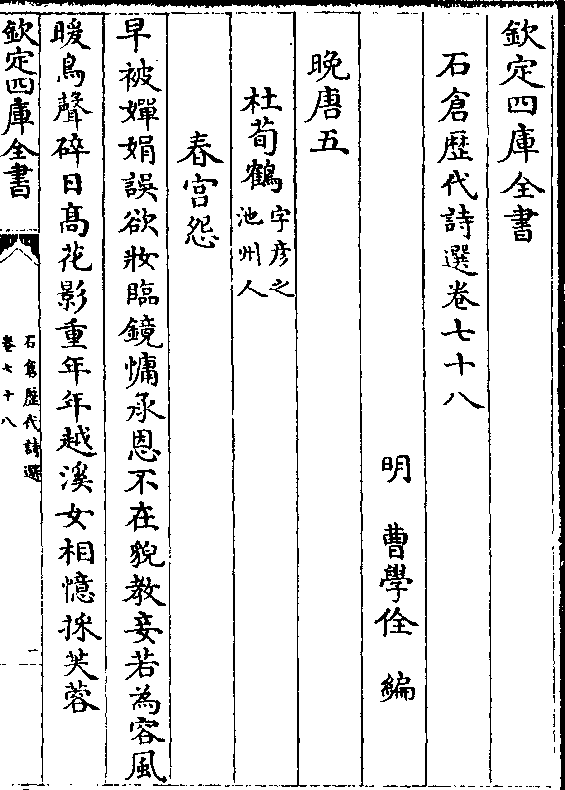 欽定四庫全書
石倉歴代詩選卷七十八
明 曹學佺 編
晚唐五
杜荀鶴字彥之
池州人
春宫怨
早被嬋娟誤欲妝臨鏡慵承恩不在貌教妾若為容風
暖鳥聲碎日髙花影重年年越溪女相憶採芙蓉
欽定四庫全書
石倉歴代詩選
卷七十八
一